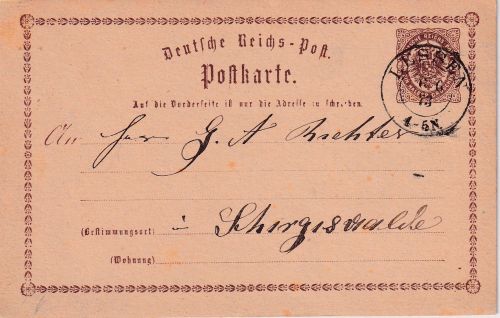 Deutsche Reichs-Post.
Postkarte.
Auf die Vorderseite ist nur die Adresse zu schreiben.
LESSEN
6
73
4-5N.
An Herr G. A Richter
(Bestimmungsort) in Schirgiswalde
(Wohnung)